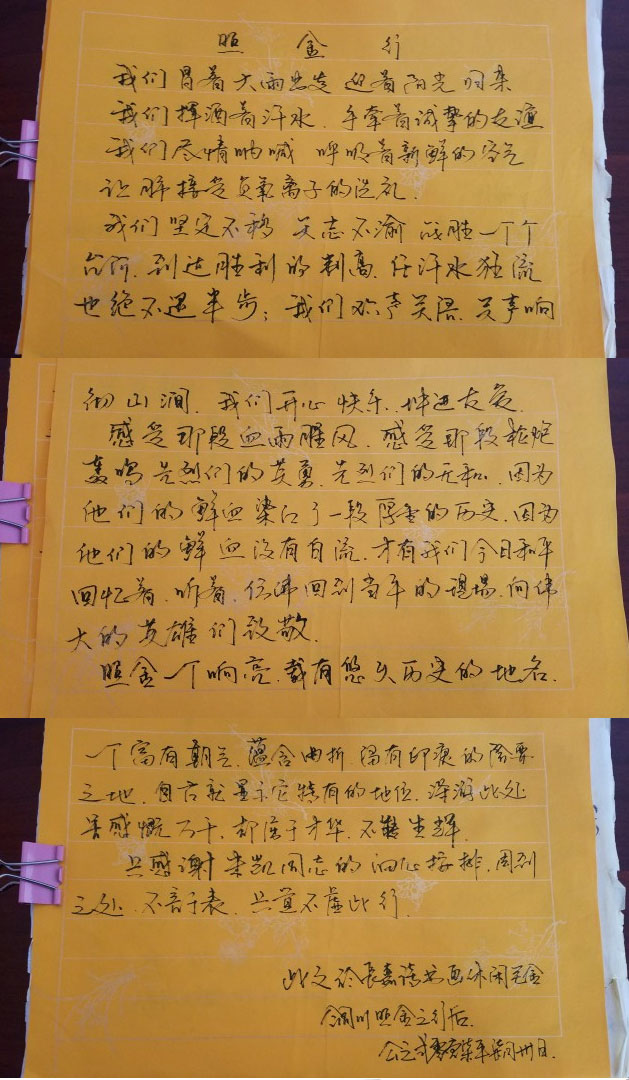 照金行
我们冒着大雨出发 迎着阳光归来
我们挥洒着汗水、手牵着诚挚的友谊
我们尽情呐喊 呼吸着新鲜的空气
让肺接受负氧离子的洗礼、
我们坚定不移 矢志不渝 战胜一个个
台阶、到达胜利的制高、任汗水狂流
也绝不退半步；我们欢声笑语、笑声响
彻山涧、我们开心快乐、增进友爱、
感受那段血雨腥风、感受那段枪炮
轰鸣 先烈们的英勇、先烈们的无私、因为
他们的鲜血染红了一段厚重的历史、因为
他们的鲜血没有白流、才有我们今日和平
回忆着、听着、仿佛回到当年的现场、向伟
大的英雄们致敬、
照金一个响亮、载有悠久历史的地名、
一个富有朝气、蕴含曲折、留有印痕的险要
之地、自古就显示它特有的地位、深游此处
若感慨万千、却 于才华、不 生辉、
只感谢李凯同志的细心安排、周到
之处、不言于表、只道不虚此行、
此文於长嘉 书画休闲
铜川照金之行后、
公元 日、